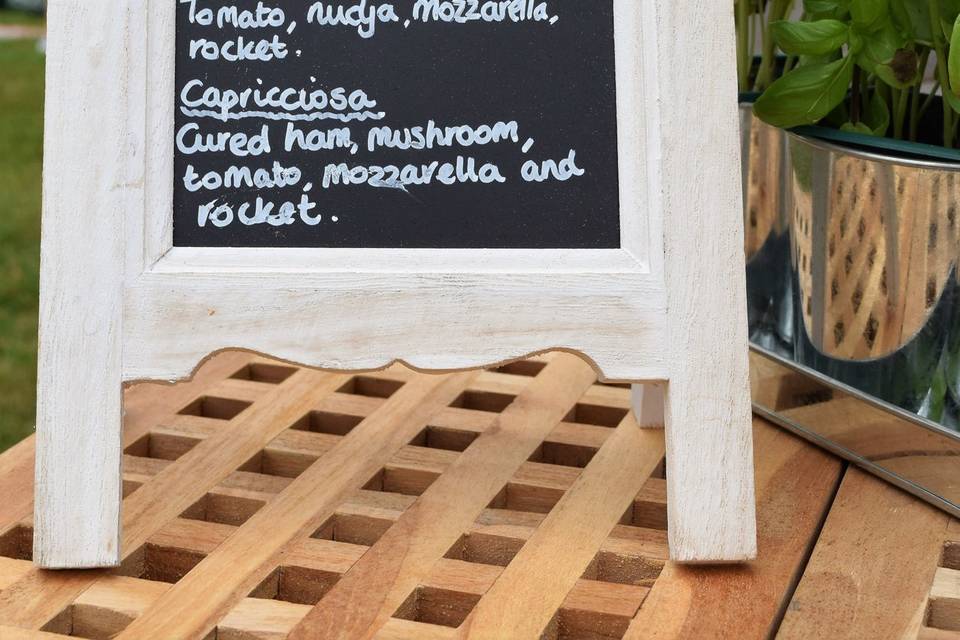 Tomato, nudja, mozzarella,
rocket.
Capricciosa
Cured ham, mushroom,
tomato, mozzarella and
rocket.